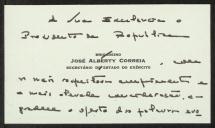 a Sua Excelência o
Presidente da República
BRIGADEIRO
JOSÉ ALBERTY CORREIA
SECRETÁRIO DE ESTADO DO EXÉRCITO
com
o mais respeitoso cumprimento e
a mais elevada consideração,
o das palavras